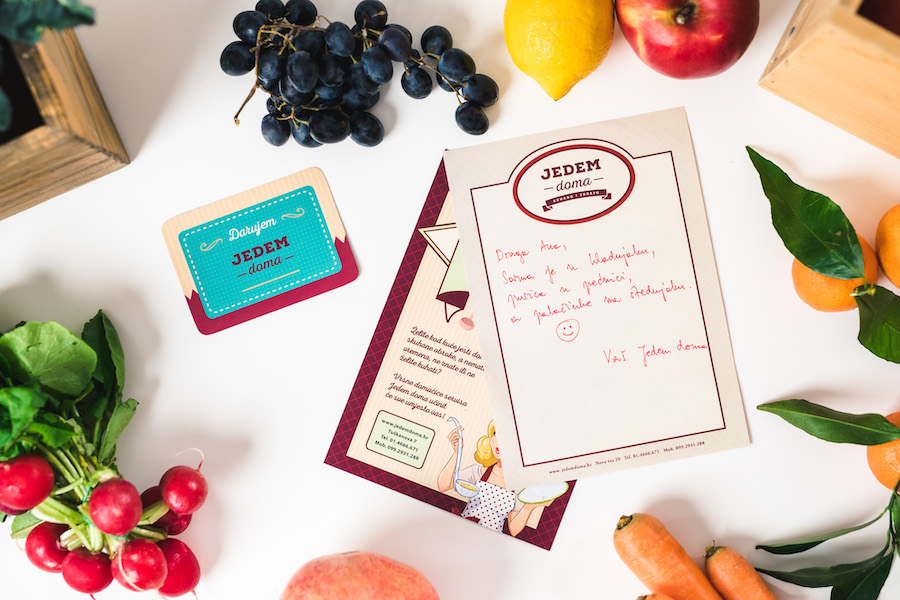 Darujem
JEDEM
doma
JEDEM
doma
KUHANO I ZDRAVO
Draga Ana,
Sarma je u hladnjaku,
purica u pećnici,
a palačinke na štednjaku.
Vaš Jedem doma
www.jedemdoma.hr Nova ves 29 Tel. 01.4666.671 Mob. 099.2931.288
Želite kod kuće jesti do
skuhane obroke, a nemate
vremena, ne znate ili ne
želite kuhati?
Vrsne domaćice servisa
Jedem doma učinit
će sve umjesto vas!
www.jedemdoma.hr
Tuškanova 7
Tel. 01.4666.671
Mob. 099.2931.288